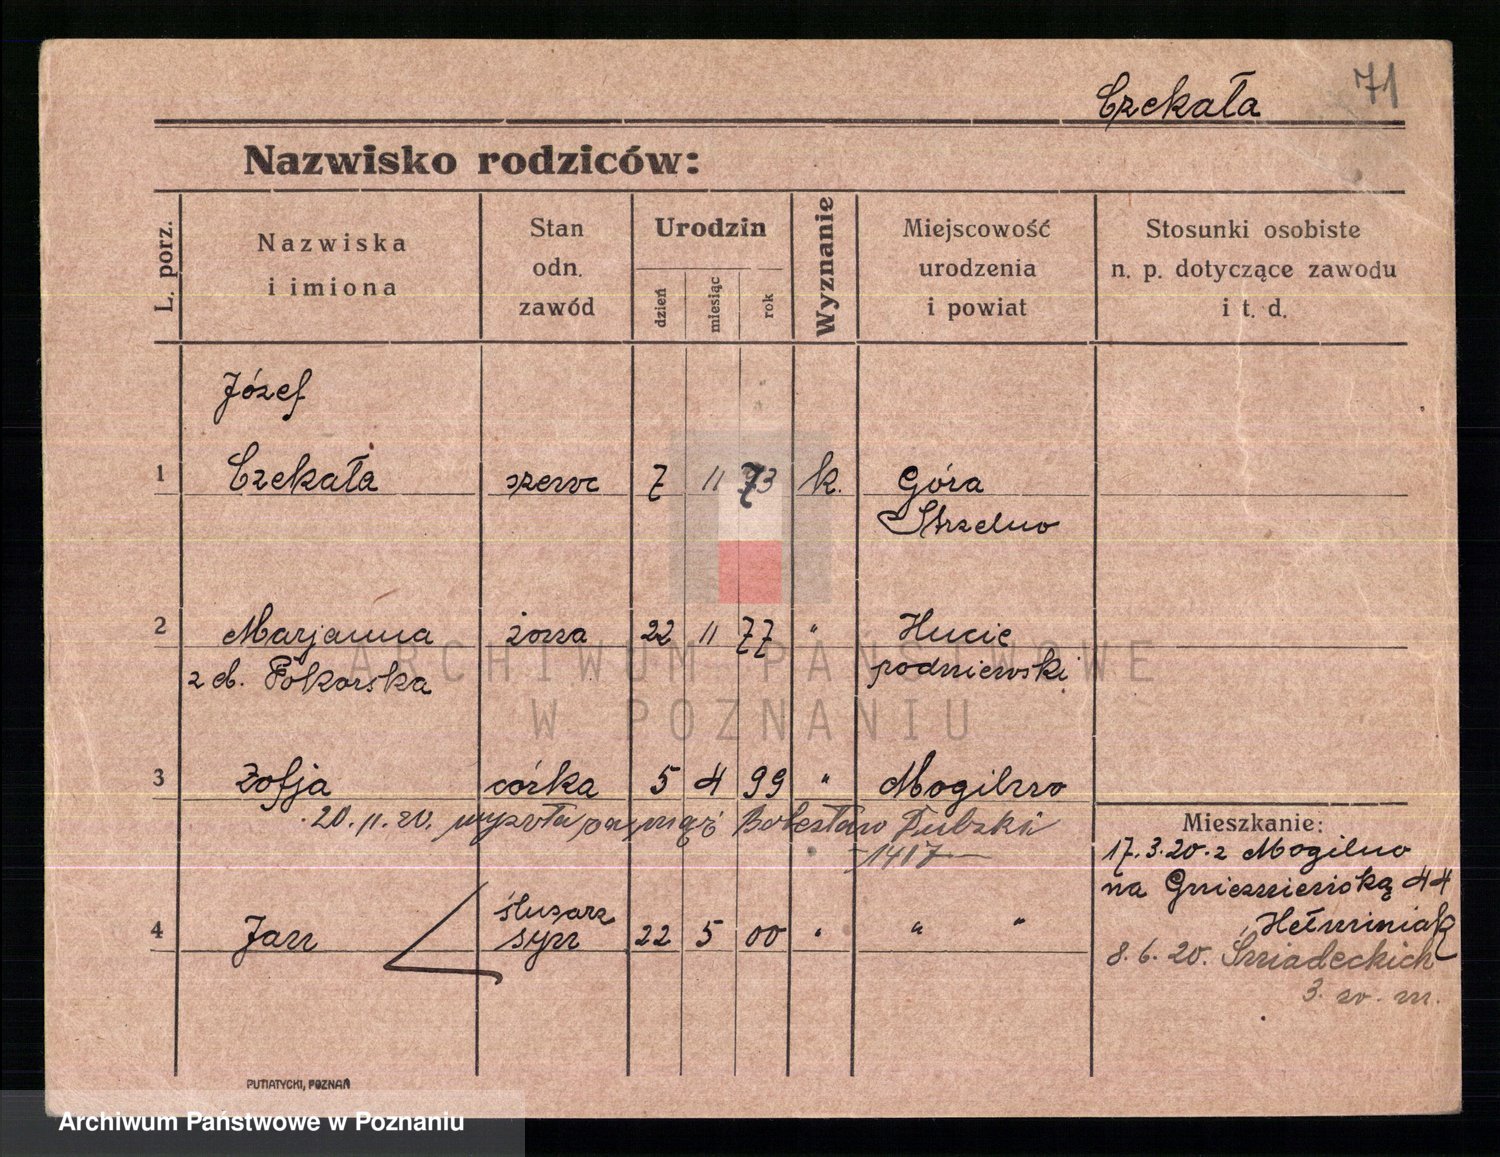 Czekała 71
Nazwisko rodziców:
L. porz.
Nazwiska
i imiona
Stan
odn.
zawód
Urodzin
dzień
miesiąc
rok
Wyznanie
Miejscowość
urodzenia
i powiat
Stosunki osobiste
n. p. dotyczące zawodu
i t. d.
Józef
1 Czekała szewc 7 11 73 k. Góra
Strzelno
2 Marjanna żona 22 11 77 " Hucie
z d. Pokorska podniewski
3 Zofja córka 5 4 99 " Mogilno
20.11.20. wyszła za mąż Bolesław
1417
Mieszkanie:
17.3.20. z Mogilno
na Gnieznieńską 44
śluzarz
4 Jan syn 22 5 00 " " "
8.6.20. Śniadeckich
3.
PUTIATYCKI, POZNAŃ
ARCHIWUM PAŃSTWOWE
W POZNANIU
Archiwum Państwowe w Poznaniu